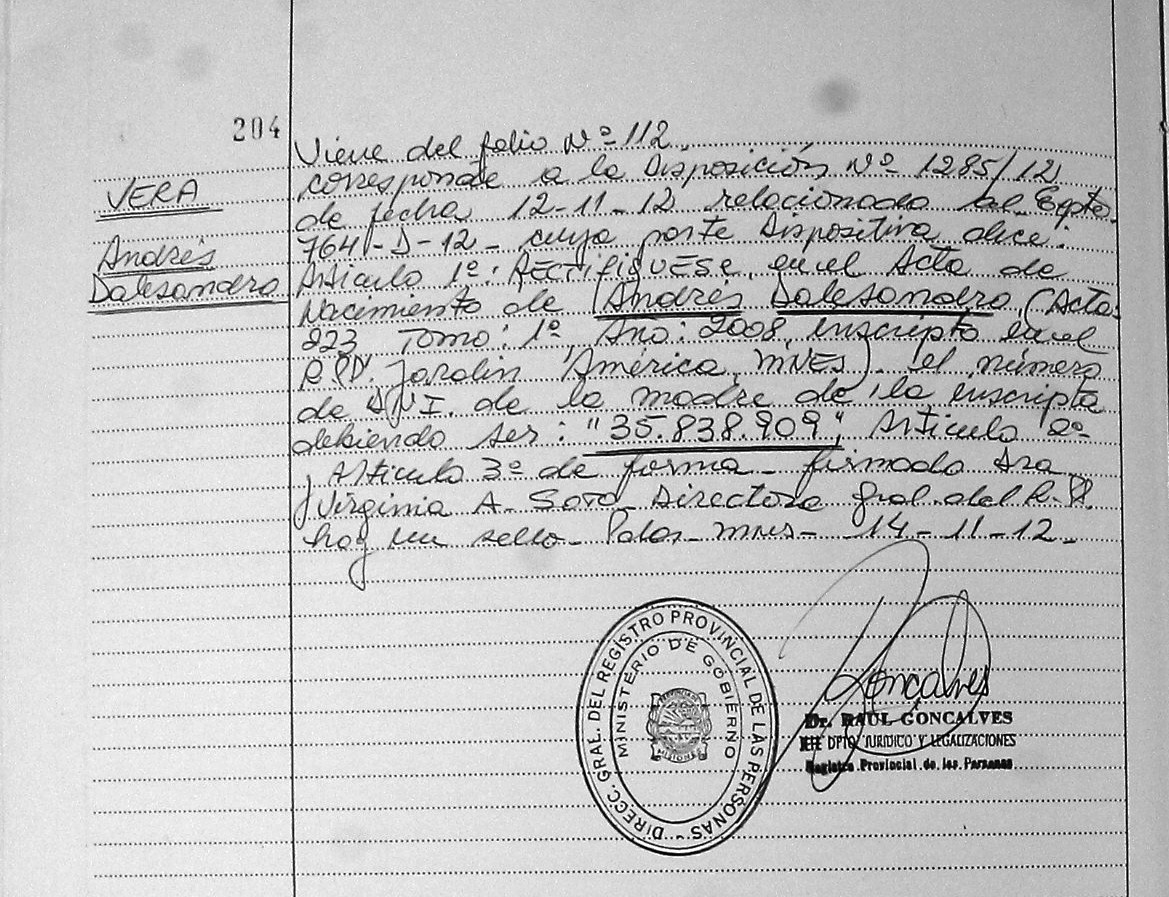 204
VERA
Andrés
Dalesandro
Viene del folio Nº 112.
corresponde a la Disposición Nº 1285/12
de fecha 12-11-12 relacionado al Expte.
764-D-12- cuya parte Dispositiva dice:
Artículo 1º: RECTIFIQUESE, en el Acta de
Nacimiento de Andrés Dalesandro (Acta
823 Tomo: 1º, Año: 2008, inscripto en el
R.PP. Jardín América, MNES). el número
de DNI. de la madre de la inscripta
debiendo ser: "35.838.909", Artículo 2º
, Artículo 3º de forma- firmado Dra
Virginia A. Soto Directora Gral. del R.PP.
hay un sello- Pdas- mnes- 14-11-12-
DIRECC. GRAL. DEL REGISTRO PROVINCIAL DE LAS PERSONAS
MINISTERIO DE GOBIERNO
PROVINCIA DE
MISIONES
Goncalves
Dr. RAUL GONCALVES
JEFE DPTO. JURIDICO Y LEGALIZACIONES
Registro Provincial de las Personas